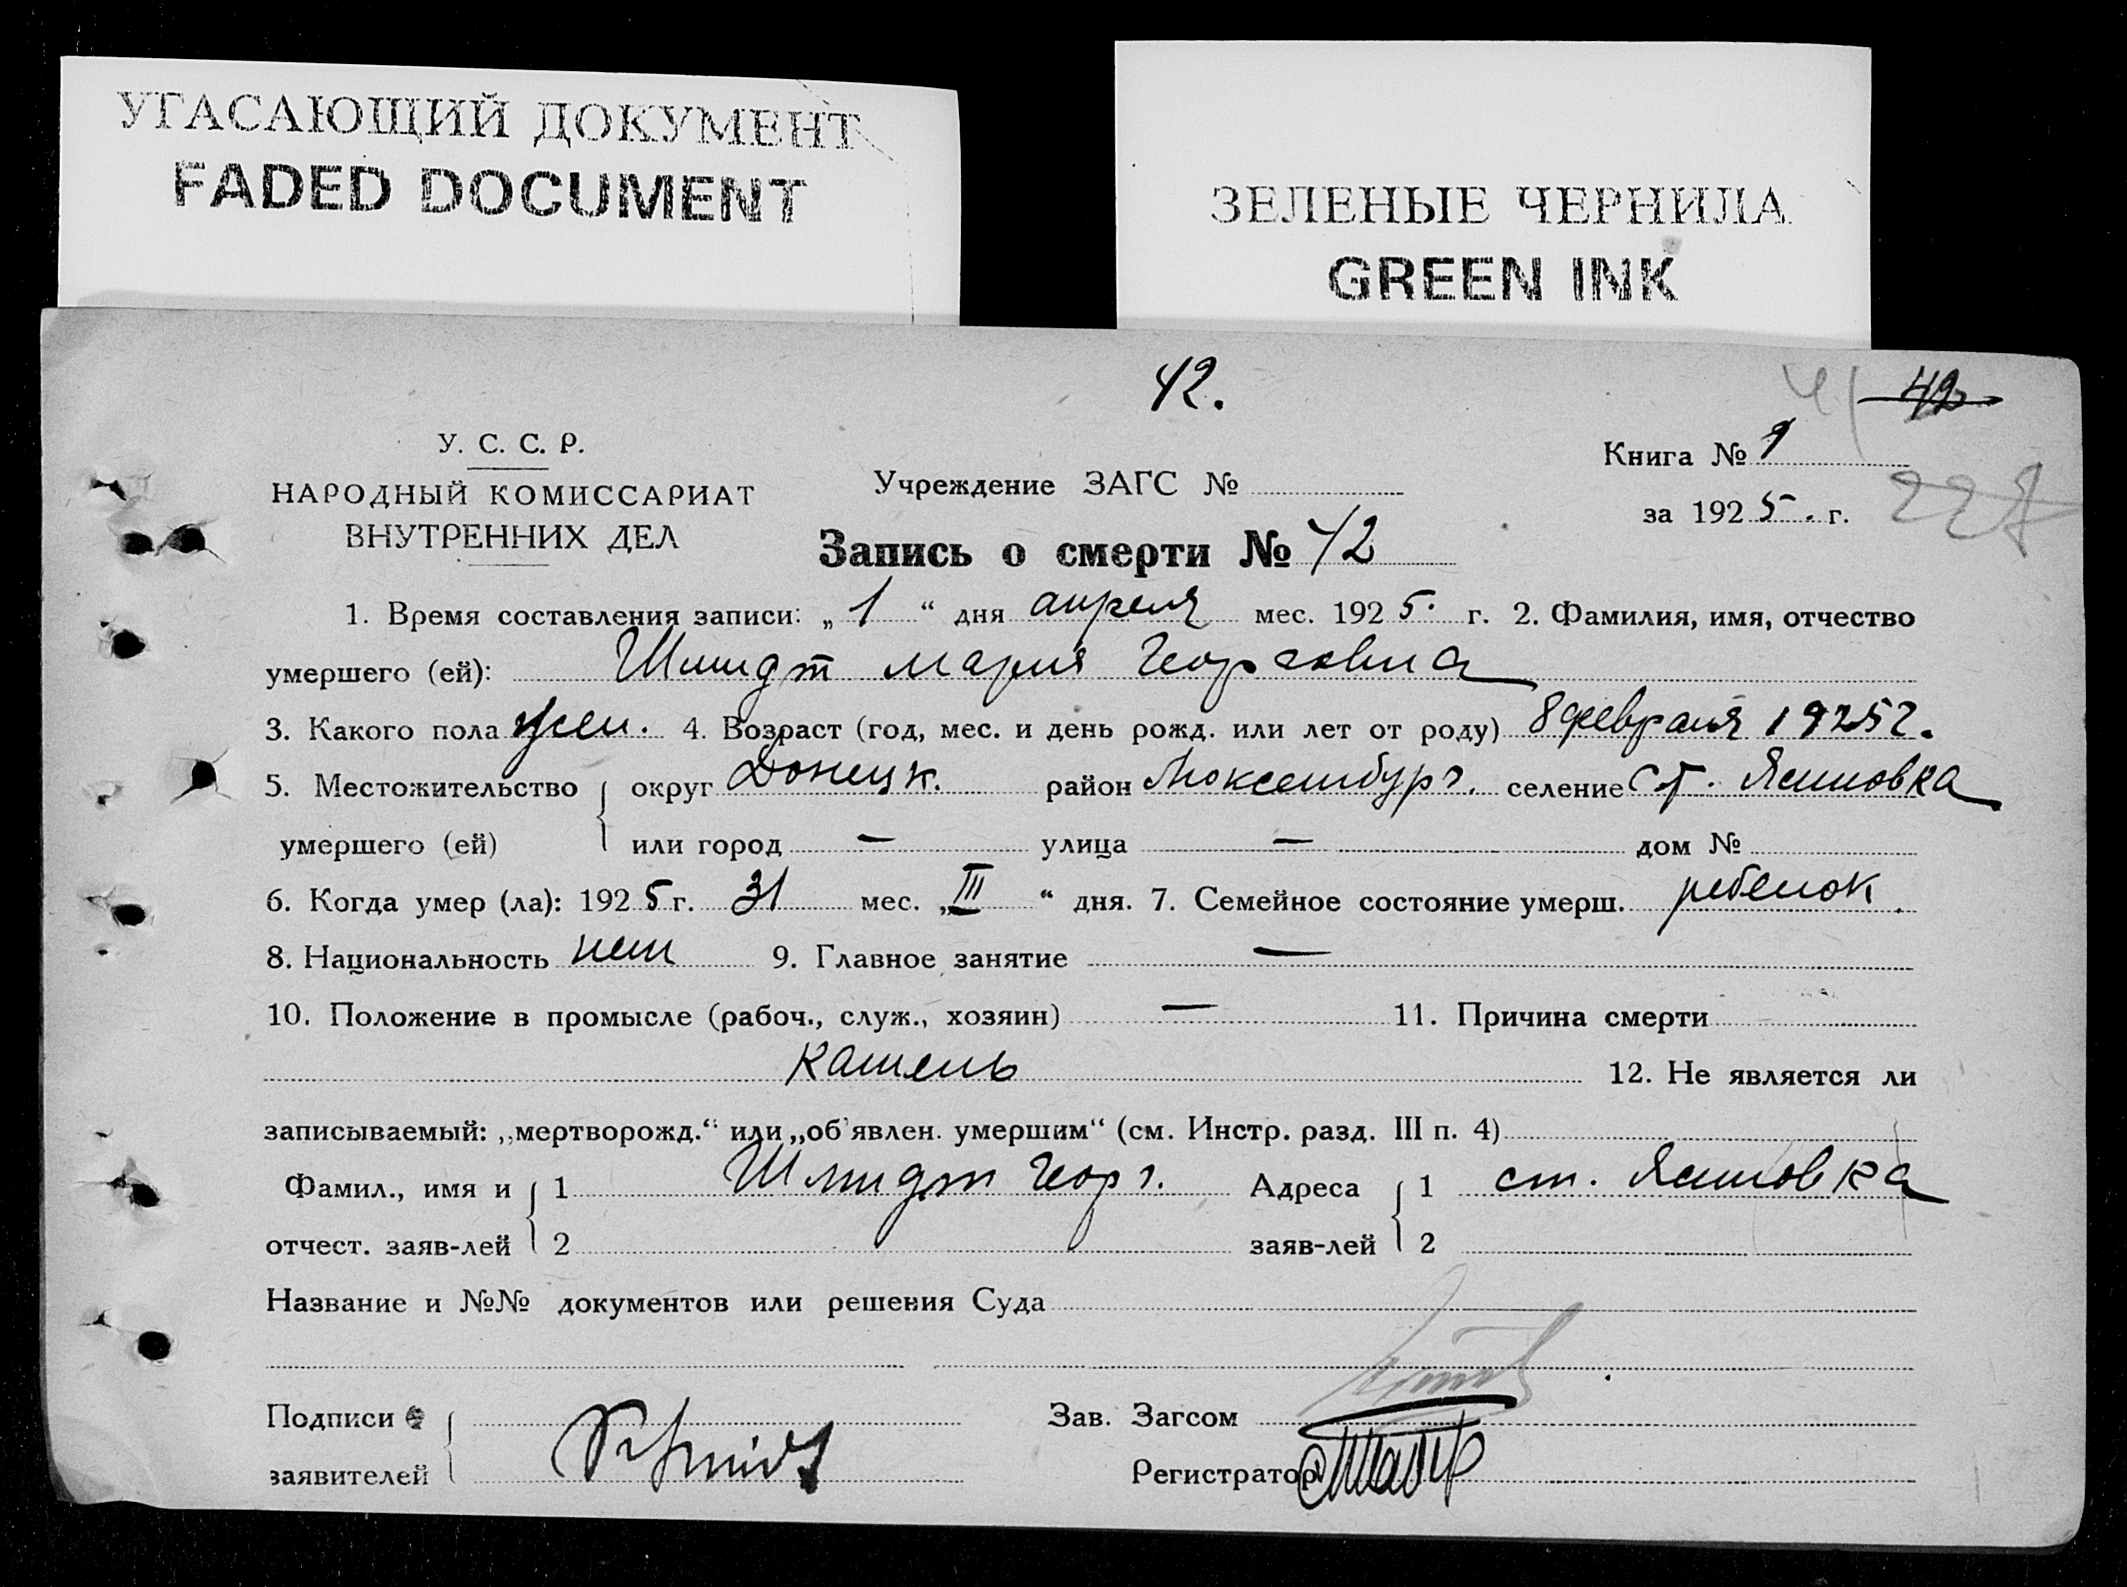 УГАСАЮЩИЙ ДОКУМЕНТ
FADED DOCUMENT
ЗЕЛЕНЫЕ ЧЕРНИЛА
GREEN INK
42.
41 42
У. С. С. Р.
НАРОДНЫЙ КОМИССАРИАТ
ВНУТРЕННИХ ДЕЛ
Учреждение ЗАГС №
Книга № 1
за 1925. г.
227
Запись о смерти № 42
1. Время составления записи: „ 1 “ дня апреля мес. 1925. г. 2. Фамилия, имя, отчество
умершего (ей): Шмидт Мария Георговна
3. Какого пола жен. 4. Возраст (год, мес. и день рожд. или лет от роду) 8 февраля 1925 г.
5. Местожительство { округ Донецк. район Люксембург. селение ст. Ясиновка
умершего (ей) или город — улица — дом №
6. Когда умер (ла): 1925 г. 31 мес. „III“ дня. 7. Семейное состояние умерш. ребенок.
8. Национальность нем 9. Главное занятие —
10. Положение в промысле (рабоч., служ., хозяин) — 11. Причина смерти
кашель 12. Не является ли
записываемый: „мертворожд.“ или „об'явлен. умершим“ (см. Инстр. разд. III п. 4)
Фамил., имя и { 1 Шмидт Георг. Адреса { 1 ст. Ясиновка
отчест. заяв-лей 2 заяв-лей 2
Название и №№ документов или решения Суда
Подписи { Зав. Загсом
заявителей Schmidt Регистратор